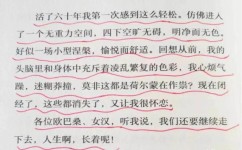 活了六十年我第一次感到这么轻松。仿佛进入
了一个无重力空间，四下空旷无碍，明净而无色，
好似一场小型涅槃，愉悦而舒适。回想从前，我的
头脑里和身体中充斥着凌乱繁复的色彩，我心烦气
躁，迷糊缠撞，莫非这都是荷尔蒙在作祟？现在闭
经了，这些都消失了，又让我很怀恋。
各位欧巴桑、女汉，听我说，我们还要继续走
下去，人生啊，长着呢！